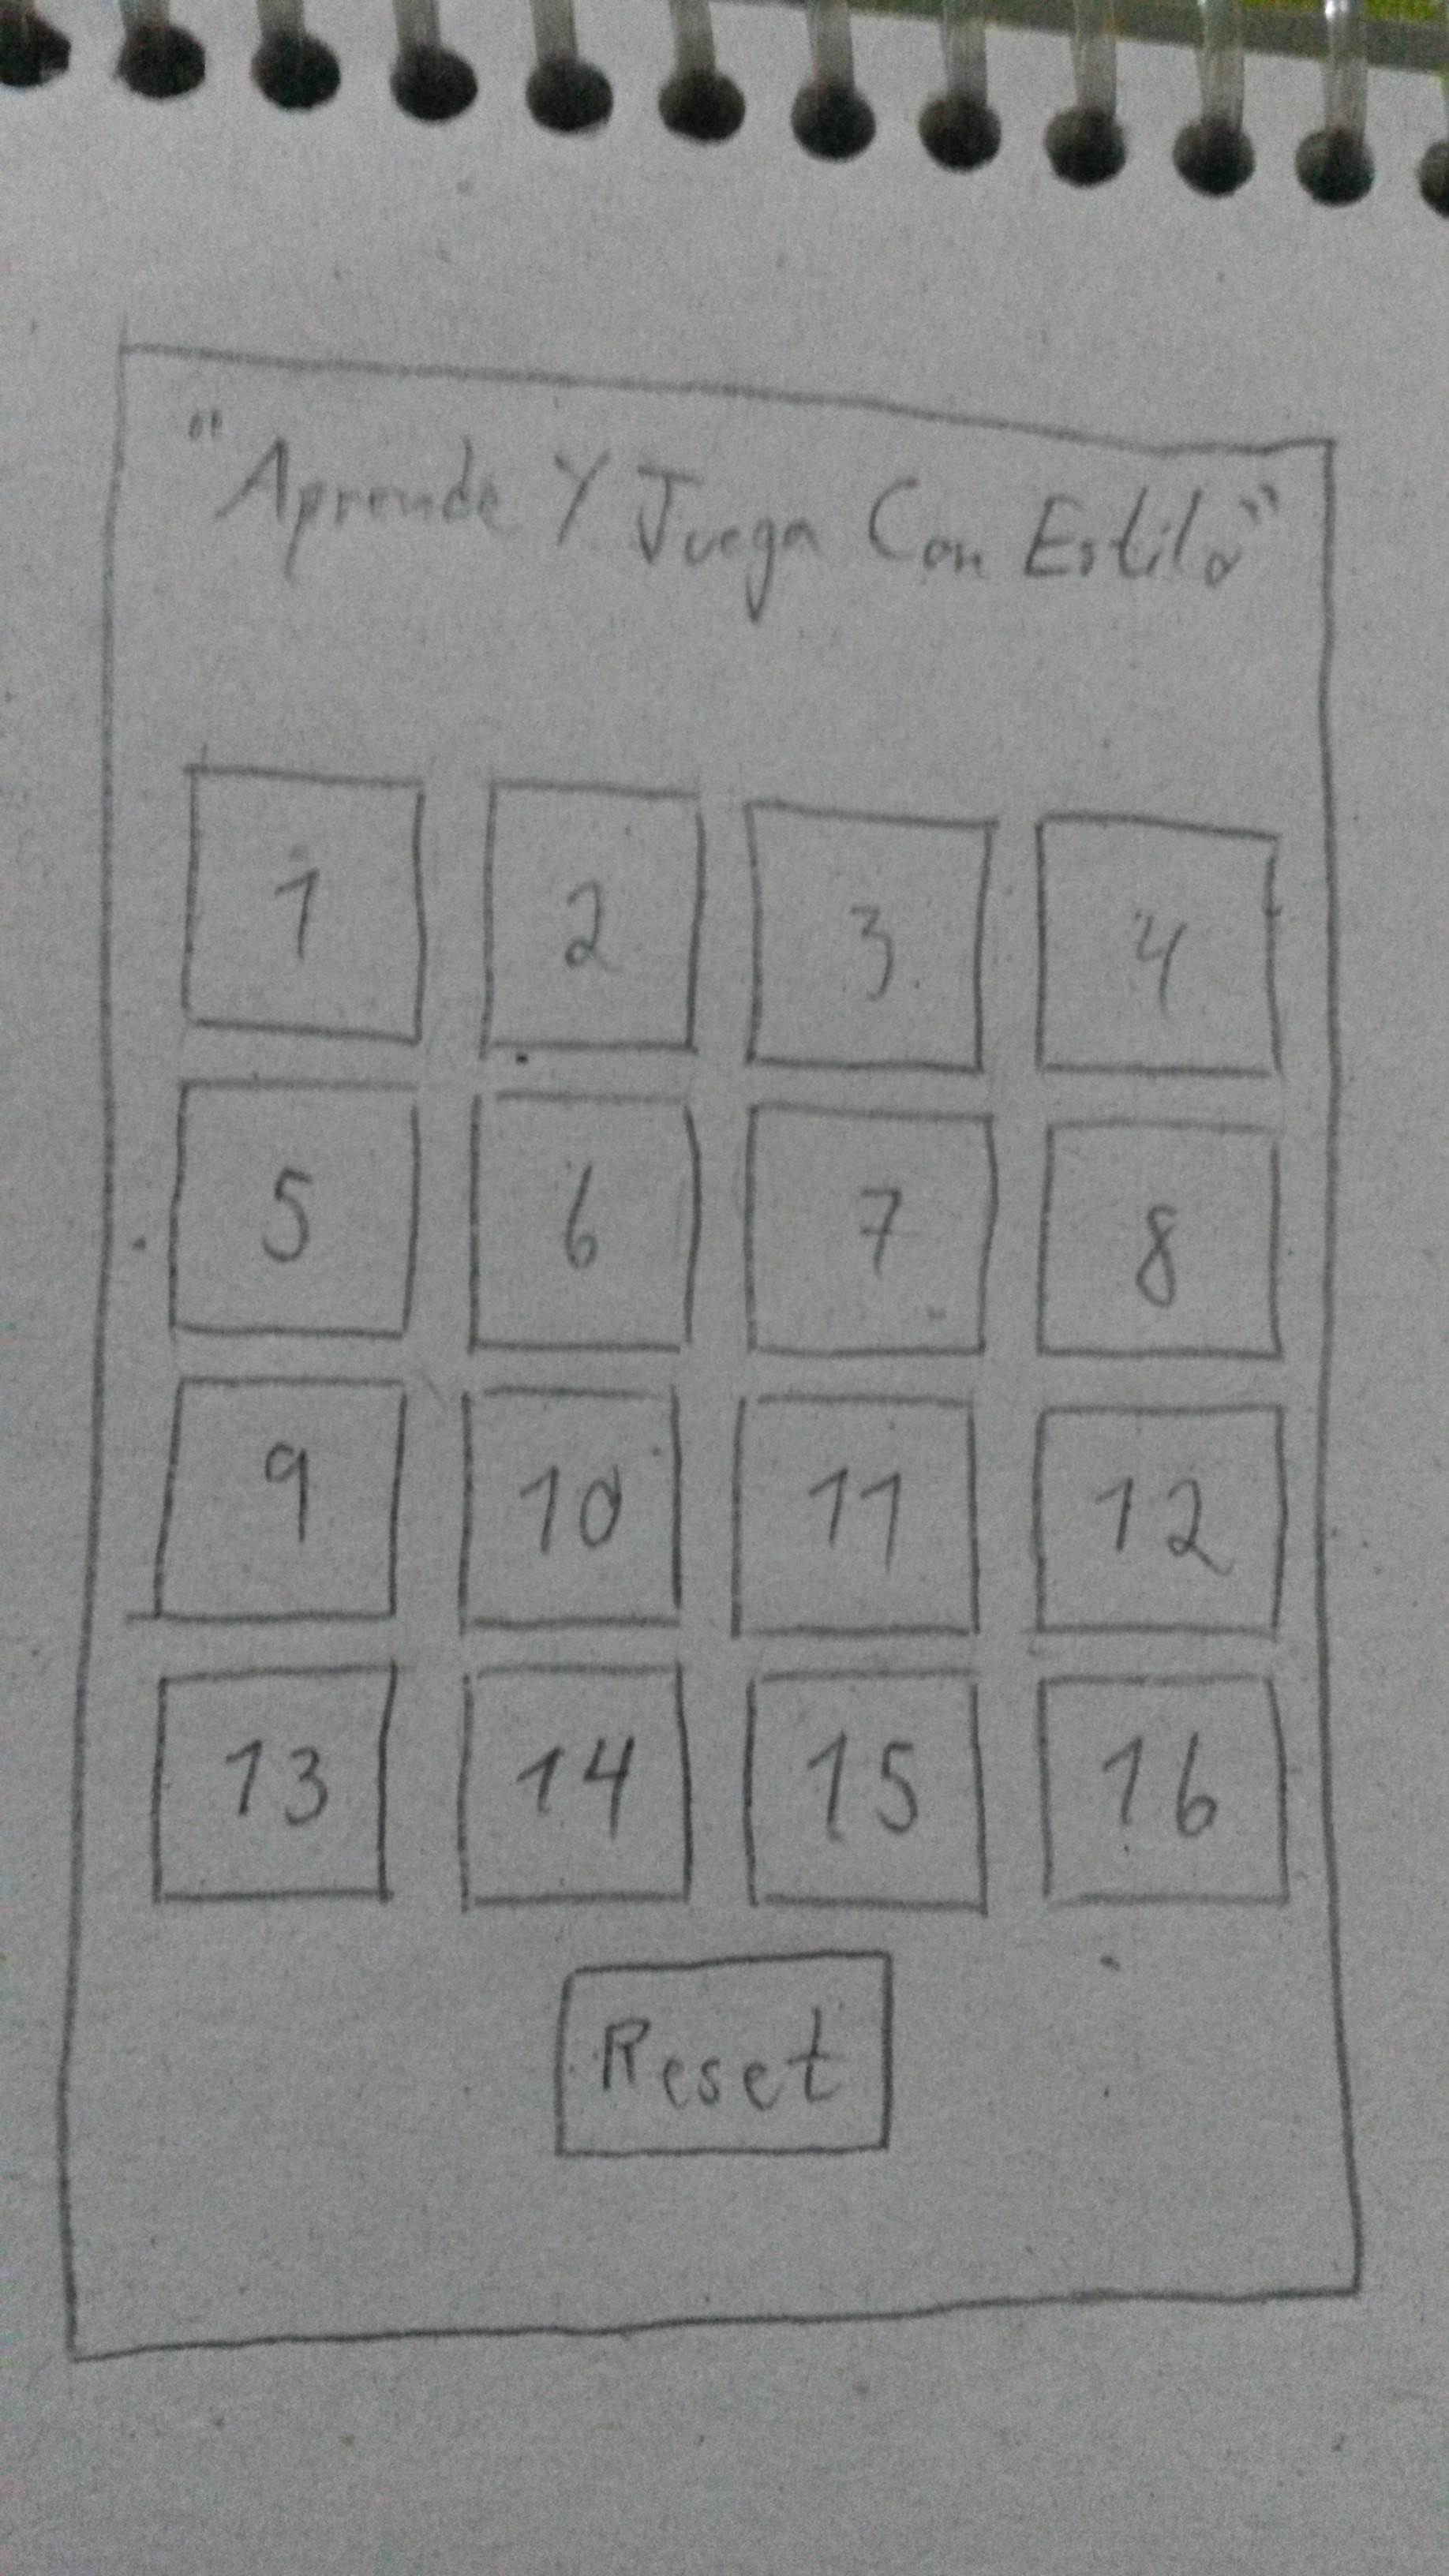 "Aprende Y Juega Con Estilo"
1 2 3 4
5 6 7 8
9 10 11 12
13 14 15 16
Reset